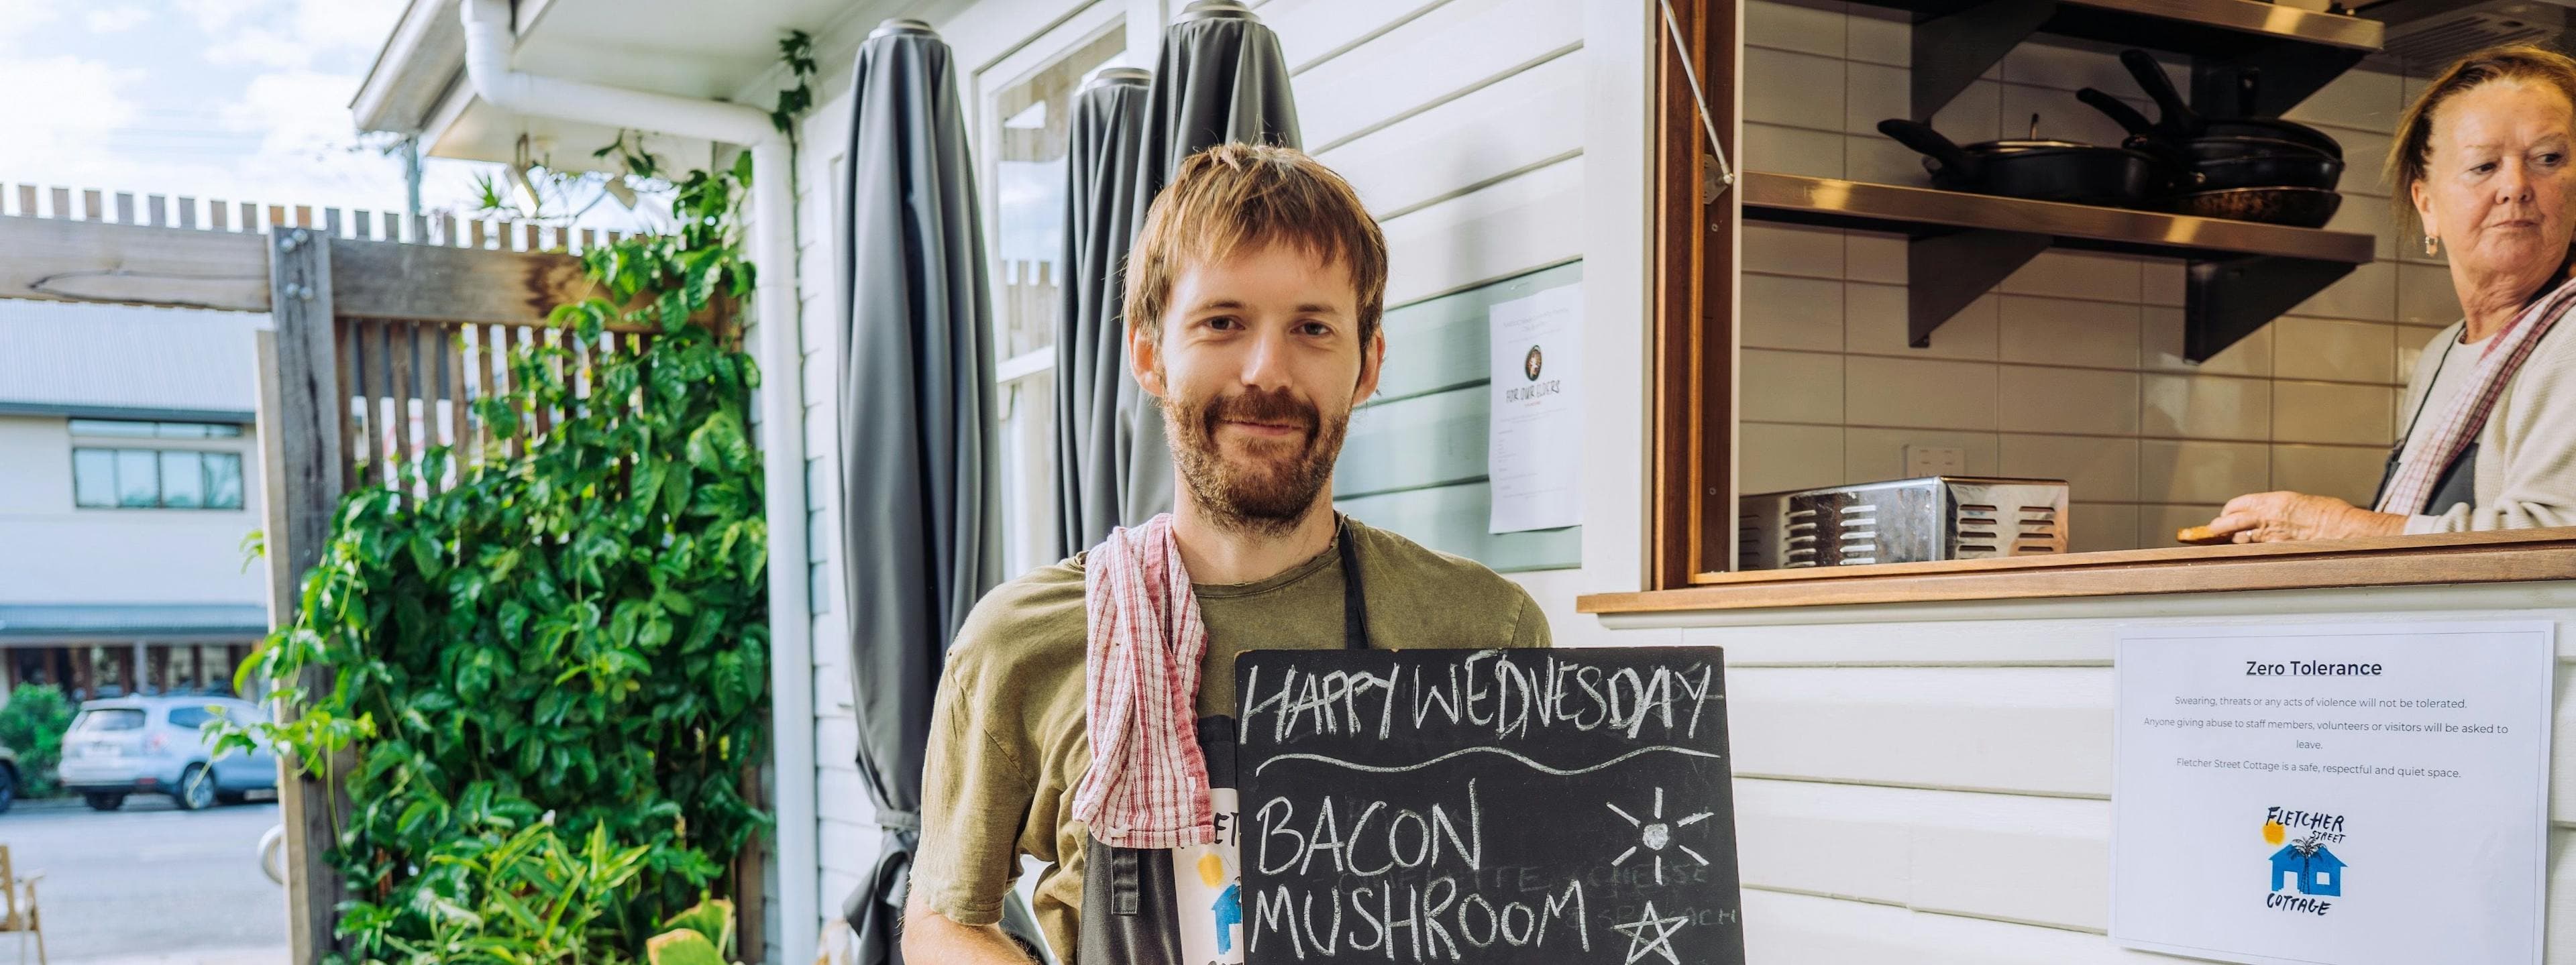 FOR OUR ELDERS
HAPPY WEDNESDAY
BACON
MUSHROOM
Zero Tolerance
Swearing, threats or any acts of violence will not be tolerated.
Anyone giving abuse to staff members, volunteers or visitors will be asked to
leave.
Fletcher Street Cottage is a safe, respectful and quiet space.
FLETCHER
STREET
COTTAGE